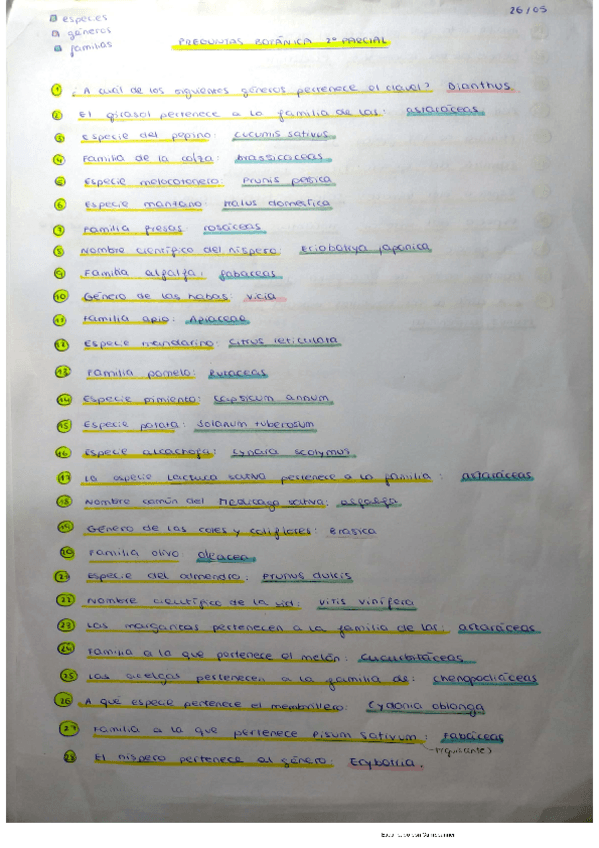 26/05
especies
géneros
familias
PREGUNTAS BOTÁNICA 2º PARCIAL
1 ¿A cuál de los siguientes géneros pertenece el clavel? Dianthus
2 El girasol pertenece a la familia de las: astaráceas
3 Especie del pepino: cucumis sativus
4 Familia de la colza: brassicaceas
5 Especie melocotonero: Prunis pesica
6 Especie manzano: Malus domestica
7 Familia fresas: rosáceas
8 Nombre científico del níspero: Eciobotiya japonica
9 Familia alfalfa: fabaceas
10 Género de las habas: vicia
11 Familia apio: Apiaceae
12 Especie mandarino: Citrus reticulata
13 Familia pomelo: Rutaceas
14 Especie pimiento: Capsicum annum
15 Especie patata: Solanum tuberosum
16 Especie alcachofa: Cynara scolymus
17 La especie Lactuca sativa pertenece a la familia: astaráceas
18 Nombre común del Medicago sativa: alfalfa
19 Género de las coles y coliflores: Brasica
20 Familia olivo oleacea
21 Especie del almendro: Prunus dulcis
22 Nombre científico de la vid: vitis vinifera
23 Las margaritas pertenecen a la familia de las: astaráceas
24 Familia a la que pertenece el melón: Cucurbitáceas
25 Las acelgas pertenecen a la familia de: chenopodiáceas
26 A qué especie pertenece el membrillero: Cydonia oblonga
27 Familia a la que pertenece Pisum sativum: Fabáceas
(guisante)
28 El níspero pertenece al género: Erybotria.